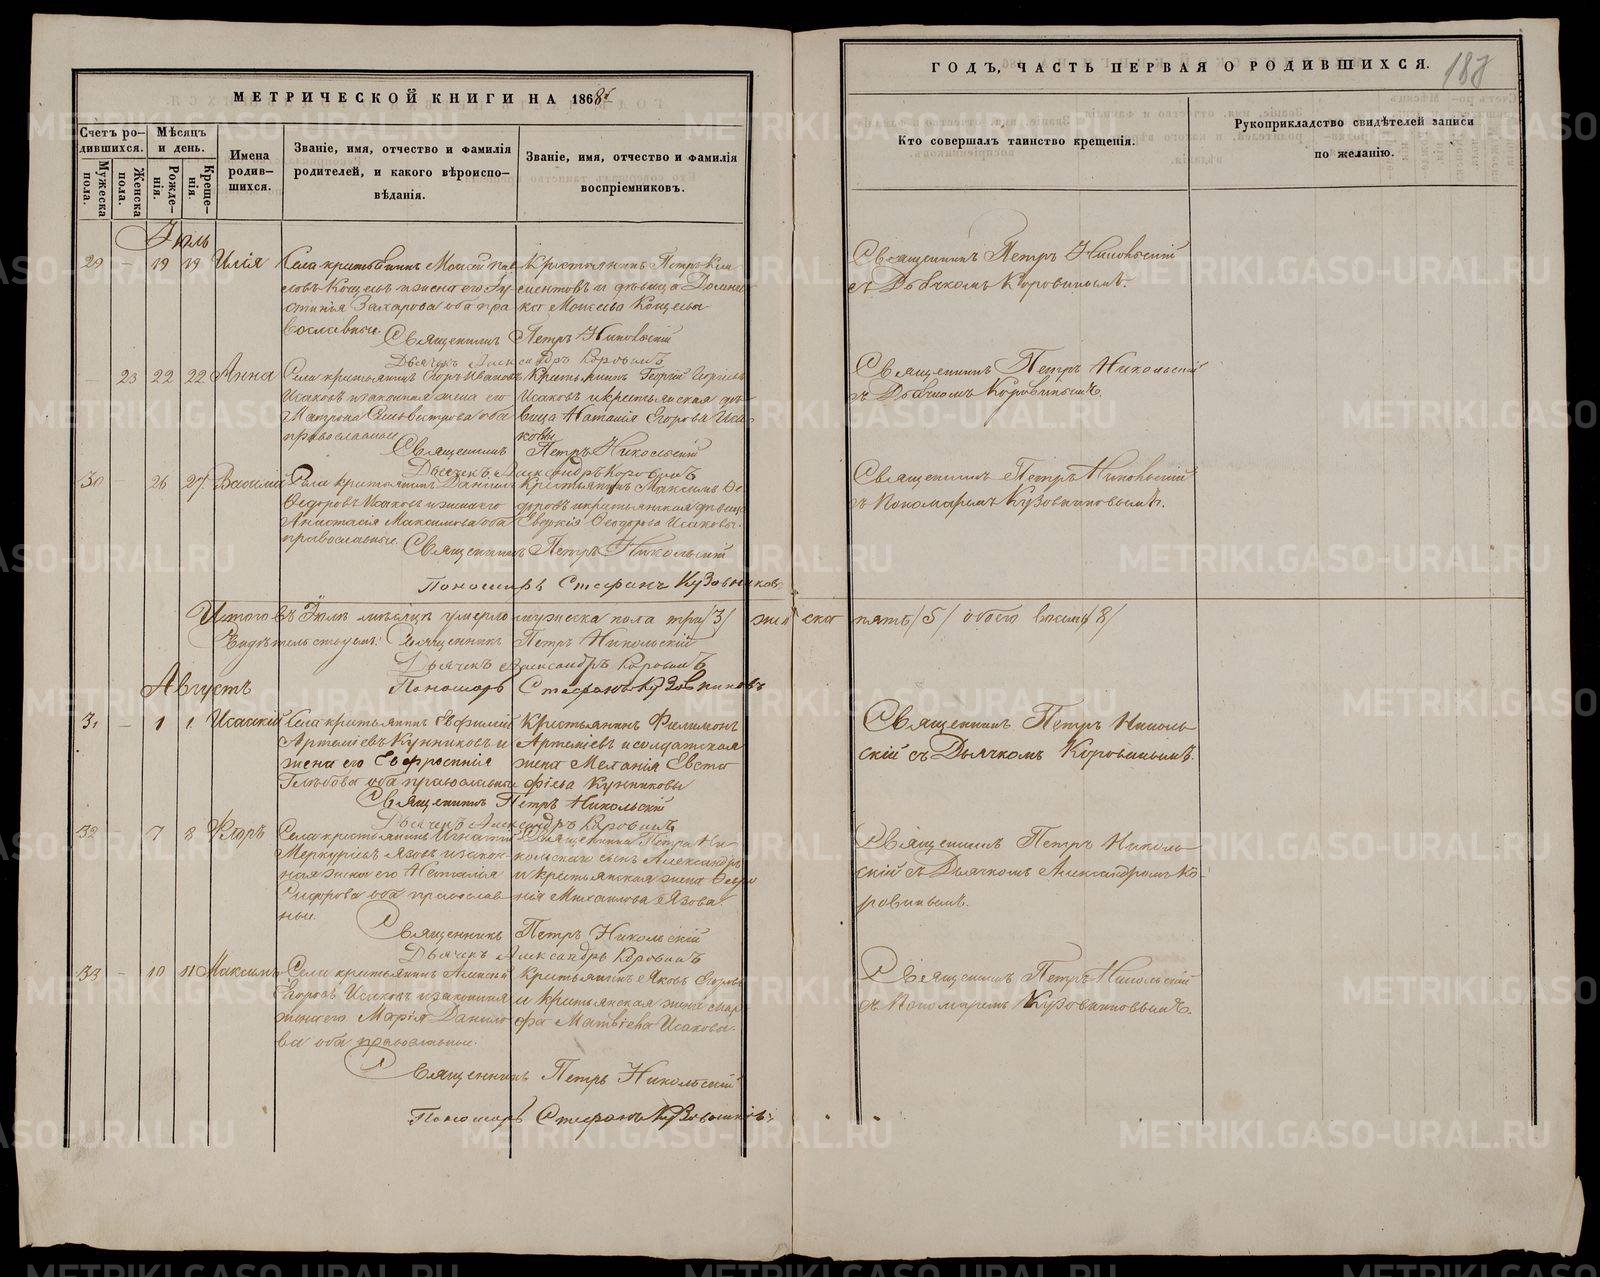 МЕТРИЧЕСКОЙ КНИГИ НА 1868й
Счетъ ро-
дившихся.
Мѣсяцъ
и день.
Мужеска
пола.
Женска
пола.
Рожде-
нія.
Креще-
нія.
Имена
родив-
шихся.
Званіе, имя, отчество и фамилія
родителей, и какого вѣроиспо-
вѣданія.
Званіе, имя, отчество и фамилія
воспріемниковъ.
Іюль
29 – 19 19 Илія
Села крестьянинъ Моисей
и жена его
стинія Захарова оба пра
вославные.
Крестьянинъ Петръ Кли
ментовъ и дѣвица
Моисеева
Священникъ Петръ Никольскій
Дьячекъ Александръ Коровинъ
– 23 22 22 Анна
Села крестьянинъ Егоръ Ивановъ
Исаковъ и законная жена его
Матрона Сильвестрова оба
православные
Крестьянинъ Георгій
Исаковъ и крестьянская дѣ
вица Наталія Егорова Иса
ковы
Священникъ Петръ Никольскій
Дьячекъ Александръ Коровинъ
30 – 26 27 Василій
Села крестьянинъ Даніилъ
Ѳедоровъ Исаковъ и жена его
Анастасія Максимова оба
православные.
Крестьянинъ Максимъ Ѳе
доровъ и крестьянская дѣвица
Ѳеодорова Исаковы.
Священникъ Петръ Никольскій
Пономарь Стефанъ Кузовниковъ
Итого въ Іюлѣ мѣсяцѣ умерло мужеска пола три /3/ женско пять /5/ обоего восемь /8/
Свидѣтельствуемъ: Священникъ Петръ Никольскій
Дьячекъ Александръ Коровинъ
Пономарь Стефанъ Кузовниковъ
Августъ
31 – 1 1 Исаакій
Села крестьянинъ Евфимій
Артеміевъ Кунниковъ и
жена его Евфросинія
Глѣбова оба православные
Крестьянинъ Филимонъ
Артеміевъ и солдатская
жена Меланія Евста
фіева Кунниковы
Священникъ Петръ Никольскій
Дьячекъ Александръ Коровинъ
32 7 8 Егоръ
Села крестьянинъ Игнатій
Меркурьевъ Язовъ и закон-
ная жена его Наталья
оба православ
ные.
Священника Петра Ни
кольскаго сынъ Александръ
и крестьянская жена Февро
нія Михаилова Язова.
Священникъ Петръ Никольскій
Дьячекъ Александръ Коровинъ
33 – 10 11 Максимъ
Села крестьянинъ Алексѣй
Егоровъ Исаковъ и законная
жена его Марія Данило
ва оба православные.
Крестьянинъ Яковъ Егоровъ
и крестьянская жена Мар
фа Матвіева Исаковы.
Священникъ Петръ Никольскій
Пономарь Стефанъ Кузовниковъ
ГОДЪ, ЧАСТЬ ПЕРВАЯ О РОДИВШИХСЯ.
188
Кто совершалъ таинство крещенія.
Рукоприкладство свидѣтелей записи
по желанію.
Священникъ Петръ Никольскій
съ Дьячкомъ Коровинымъ.
Священникъ Петръ Никольскій
съ Дьячкомъ Коровинымъ.
Священникъ Петръ Никольскій
съ Пономаремъ Кузовниковымъ.
Священникъ Петръ Николь
скій съ Дьячкомъ Коровинымъ.
Священникъ Петръ Николь
скій съ Дьячкомъ Александромъ Ко-
ровинымъ.
Священникъ Петръ Никольскій
съ Пономаремъ Кузовниковымъ.
METRIKI.GASO-URAL.RU